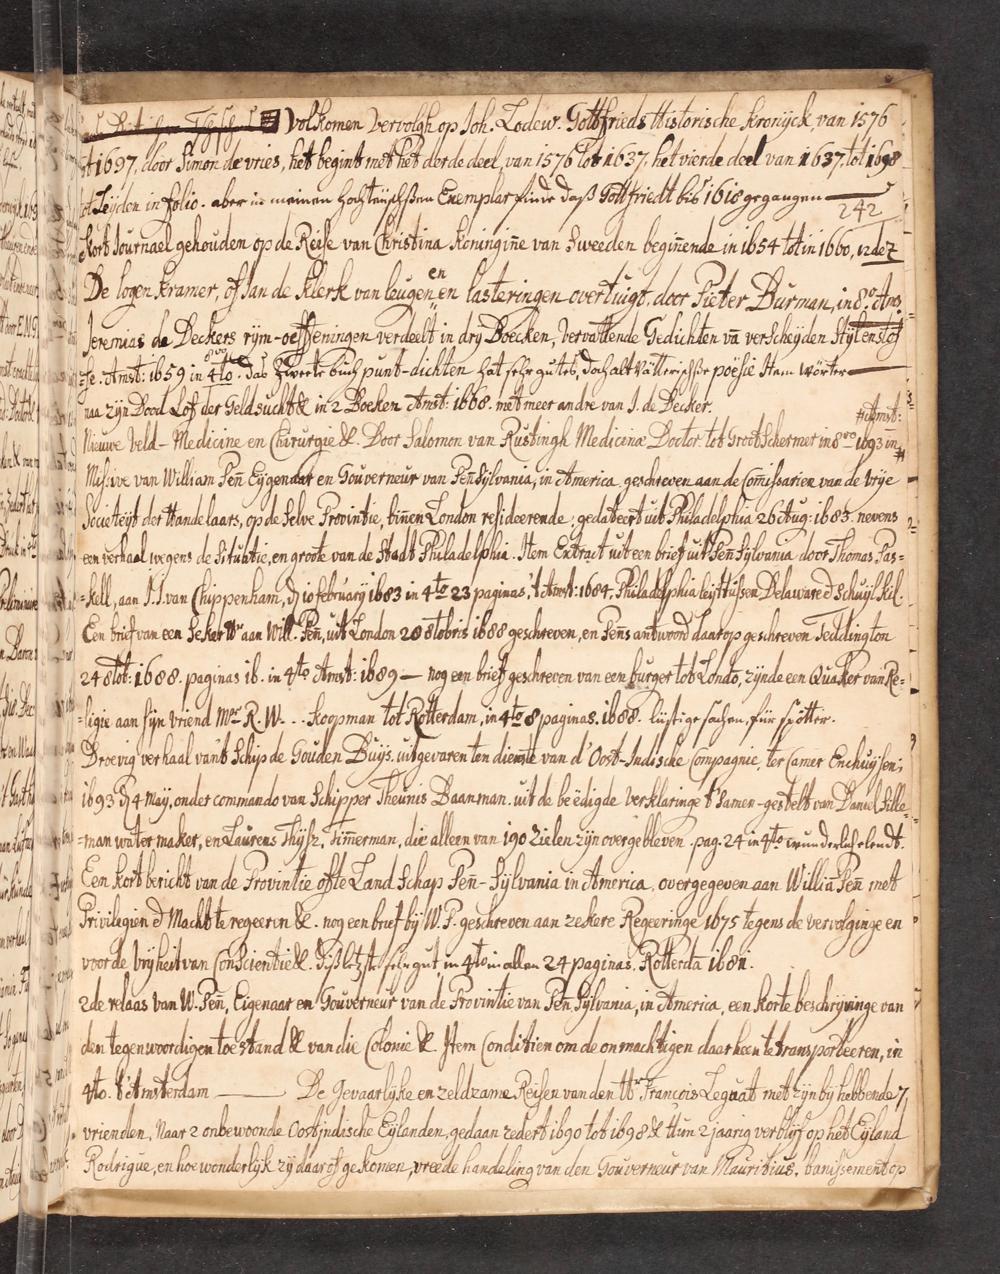 Volkomen Vervolgh op Joh. Lodew. Gottfrieds Historische Kronijck, van 1576
tot 1697, door Simon de vries, het begint met het derde deel, van 1576 tot 1637, het vierde deel van 1637 tot 1698
tot Leÿden in folio. aber in meinen Hochteutschen Exemplar finde daß Gottfriedt biß 1618 gegangen
242
Kort Journael gehouden op de Reise van Christina Koninginne van Sweeden beginnende in 1654 tot in 1660, 12de
De logen kramer, of Jan de Klerk van leugen en lasteringen overtuigt, door Pieter Burman, in 8o. Ams.
en
Jeremias de Deckers rijm-oeffeningen verdeelt in dry Boecken, vervattende Gedichten va verscheyden Stijl en stof
8vo
fe. Amst: 1659 in 4to. das zweete buch punt-dichten hat sehr gutes, doch alt Vätterische poësie Item wörter
naa zijn Dood Lof der Geldsucht & in 2 Boeken Amst: 1668. met meer andre van J. de Decker.
#Amst:
Nieuwe Veld-Medicine en Chirurgie &. Door Salomon van Rustingh Medicinæ Doctor tot Groot Schermer in 8vo 1693 in #
Missive van William Penn Eygenaar en Gouverneur van Pennsylvania, in America, geschreven aan de Commissarien van de Vrye
Societeyt der Handelaars, op de selve Provintie, binnen London resideerende, gedateert uit Philadelphia 26 Aug: 1683. nevens
een verhaal wegens de Situatie, en groote van de Stadt Philadelphia. Item Extract uit een brief uit Pennsylvania door Thomas Pas=
=kell, aan J.J. van Chippenham, d 10 february 1683 in 4to 23 paginas, 't Amst: 1684. Philadelphia leijt tussen Delaware & Schuylkil.
Een brief van een seker Hr aan Will. Penn, uit London 20 8tobris 1688 geschreven, en Penns antwoord daarop geschreven Teddington
24 8tob: 1688. paginas 16. in 4to Amst: 1689 — nog een brief geschreven van een burger tot Londo, zijnde een Quaker van Re=
=ligie aan sijn vriend Mr R. W. . . Koopman tot Rotterdam, in 4to 8 paginas. 1688. lustige sachen, für spötter.
Droevig verhaal van't Schip de Gouden Buys, uitgevaren ten dienste van d' Oost-Indische Compagnie, ter Camer Enchuysen;
1693 d 4 May, onder commando van Schipper Theunis Baanman. uit de beëdigde verklaringe t'samen-gestelt van Daniel Sille=
=man water maker, en Laurens Thysz, Timmerman, die alleen van 190 zielen zijn overgebleven. pag. 24 in 4to wunderlich elendt.
Een kort bericht van de Provintie ofte Land schap Penn-Sylvania in America, overgegeven aan Willia Penn met
Privilegien & Macht te regeeren &. nog een brief bij W.P. geschreven aan zekere Regeeringe 1675 tegens de vervolginge en
voor de vrijheit van Conscientie &. diß letzte sehr gut in 4to in allen 24 paginas. Rotterda 1681.
2de relaas van W. Penn, Eigenaar en Gouverneur van de Provintie van Penn Sylvania, in America, een korte beschrijvinge van
den tegenwoordigen toestand & van die Colonie &. Item Conditien om de onmachtigen daar heen te transporteeren, in
4to. t'Amsterdam — De Gevaarlyke en zeldzame Reisen van den Hr Francois Leguat met zijn by hebbende 7,
vrienden, Naar 2 onbewoonde Oostindische Eylanden, gedaan zedert 1690 tot 1698 & Hun 2 jaarig verblijf op het Eyland
Rodrigue, en hoe wonderlijk zij daar of gekomen, vreede handeling van den Gouverneur van Mauritius, banissement op